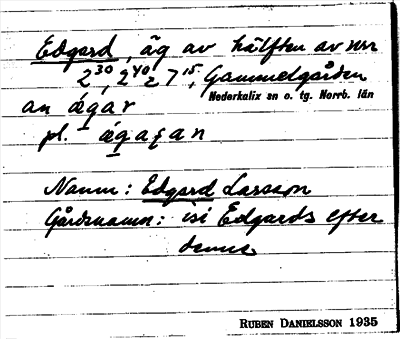 Edgard, äg av hälften av nrr
2³⁰, 2⁴⁰, 7¹⁵, Gammelgården
Nederkalix sn o. tg. Norrb. län
an ägar
pl. ägaɽan
Namn: Edgard Larsson
Gårdsnamn: isi Edgards efter
denne
RUBEN DANIELSSON 1935